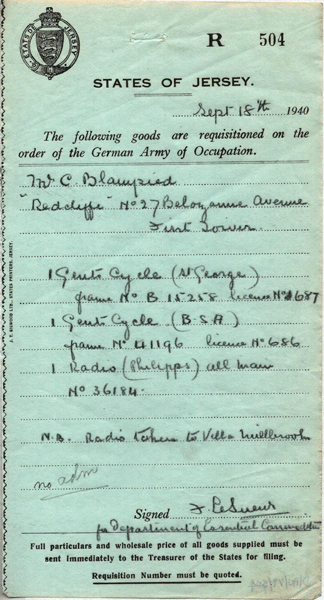 STATES OF JERSEY
R 504
STATES OF JERSEY.
Sept 18th 1940
The following goods are requisitioned on the
order of the German Army of Occupation.
Mr C Blampied
"Redcliffe" No 27 Belozanne Avenue
First Tower
1 Gents Cycle (St George)
frame No B 15258 licence No 1687
1 Gents Cycle (B.S.A)
frame No 41196 licence No 686
1 Radio (Philipps) all main
No 36184.
N.B. Radio taken to Villa Millbrook
no adm
Signed F LeSueur
for Department of Essential Committee
Full particulars and wholesale price of all goods supplied must be
sent immediately to the Treasurer of the States for filing.
Requisition Number must be quoted.